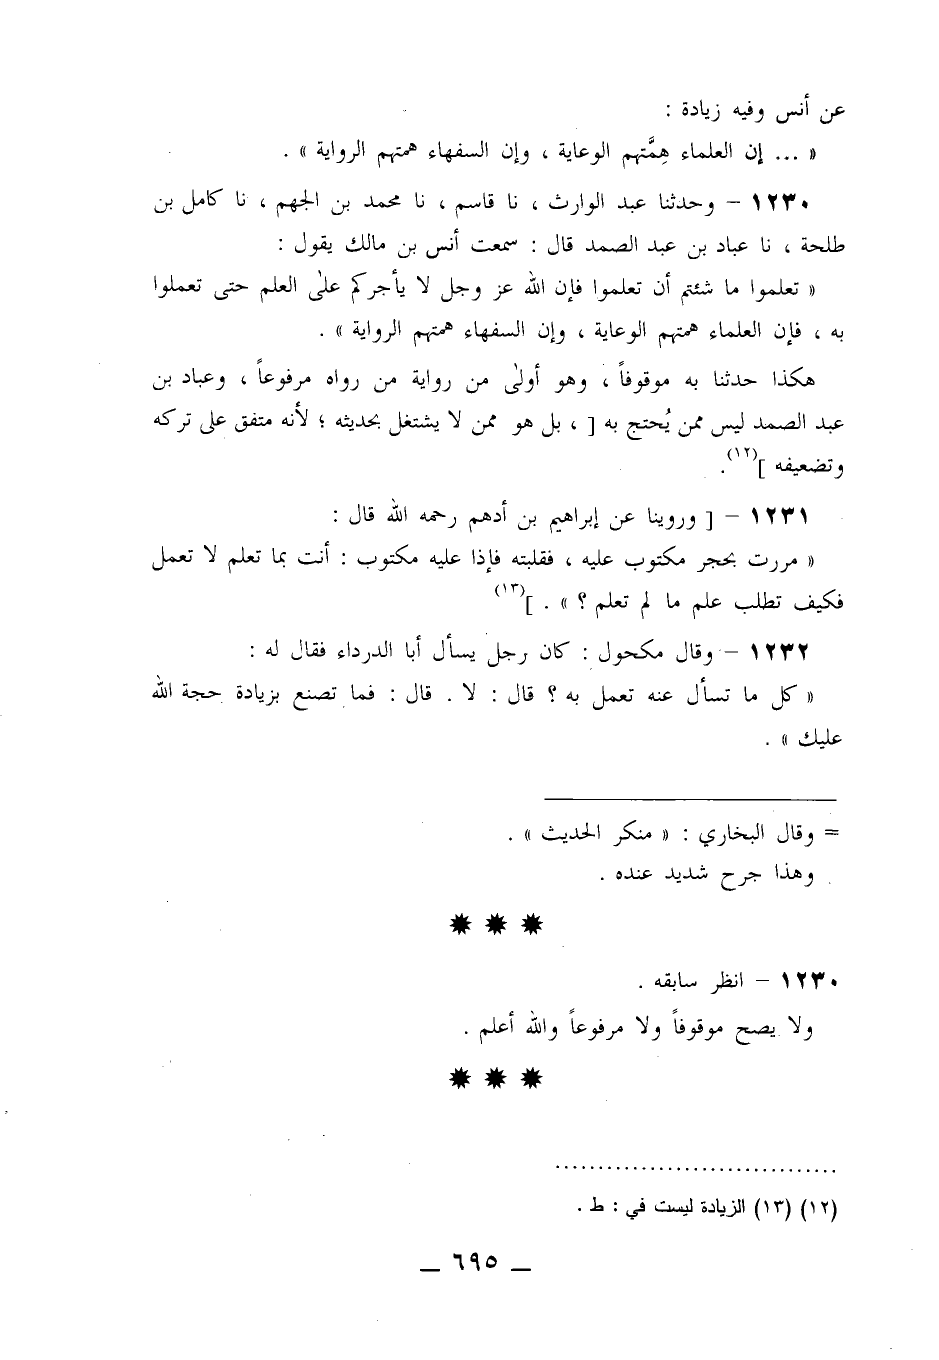 عن أنس وفيه زيادة :
« ... إن العلماء هِمَّتهم الوعاية ، وإن السفهاء همتهم الرواية » .
١٢٣٠ – وحدثنا عبد الوارث ، نا قاسم ، نا محمد بن الجهم ، نا كامل بن
طلحة ، نا عباد بن عبد الصمد قال : سمعت أنس بن مالك يقول :
« تعلموا ما شئتم أن تعلموا فإن الله عز وجل لا يأجركم على العلم حتى تعملوا
به ، فإن العلماء همتهم الوعاية ، وإن السفهاء همتهم الرواية » .
هكذا حدثنا به موقوفاً ، وهو أولى من رواية من رواه مرفوعاً ، وعباد بن
عبد الصمد ليس ممن يُحتج به [ ، بل هو ممن لا يشتغل بحديثه ؛ لأنه متفق على تركه
وتضعيفه ](١٢).
١٢٣١ – [ وروينا عن إبراهيم بن أدهم رحمه الله قال :
« مررت بحجر مكتوب عليه ، فقلبته فإذا عليه مكتوب : أنت بما تعلم لا تعمل
فكيف تطلب علم ما لم تعلم ؟ » . ](١٣)
١٢٣٢ – وقال مكحول : كان رجل يسأل أبا الدرداء فقال له :
« كل ما تسأل عنه تعمل به ؟ قال : لا . قال : فما تصنع بزيادة حجة الله
عليك » .
= وقال البخاري : « منكر الحديث » .
وهذا جرح شديد عنده .
١٢٣٠ – انظر سابقه .
ولا يصح موقوفاً ولا مرفوعاً والله أعلم .
(١٢) (١٣) الزيادة ليست في : ط .
– ٦٩٥ –